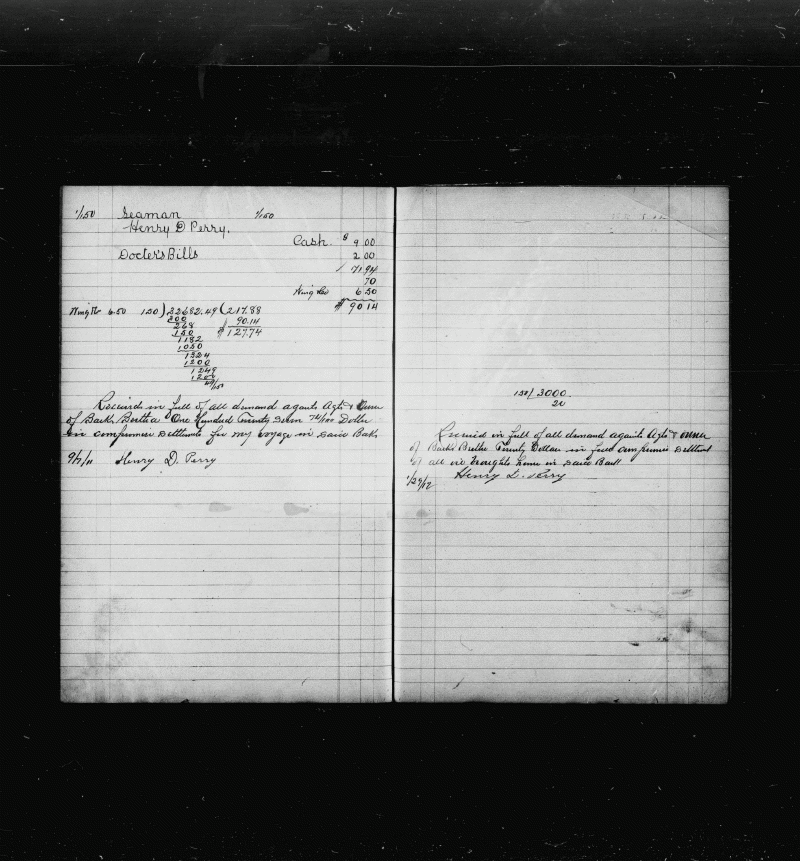 1/150 Seaman 1/150
Henry D Perry.
Cash. $ 9 00
Docter's Bills 2 00
71.94
70
6 50
$ 90 14
6.50 150 ) 32682.49 ( 217.88
300 90.14
268 $ 127.74
150
1182
1050
1324
1200
1249
1200
49/150
Received in full of all demand against Agts & Owner
of Bark Bertha One Hundred Twenty Seven 74/100 Dollar
in compromise settlement for my voyage in said Bark
9/7/11 Henry D. Perry
150/ 3000
20
Received in full of all demand against Agts & owner
of Bark Bertha Twenty Dollars in full compromise settlement
of all oil brought home in said Bark
1/29/12 Henry D. Perry